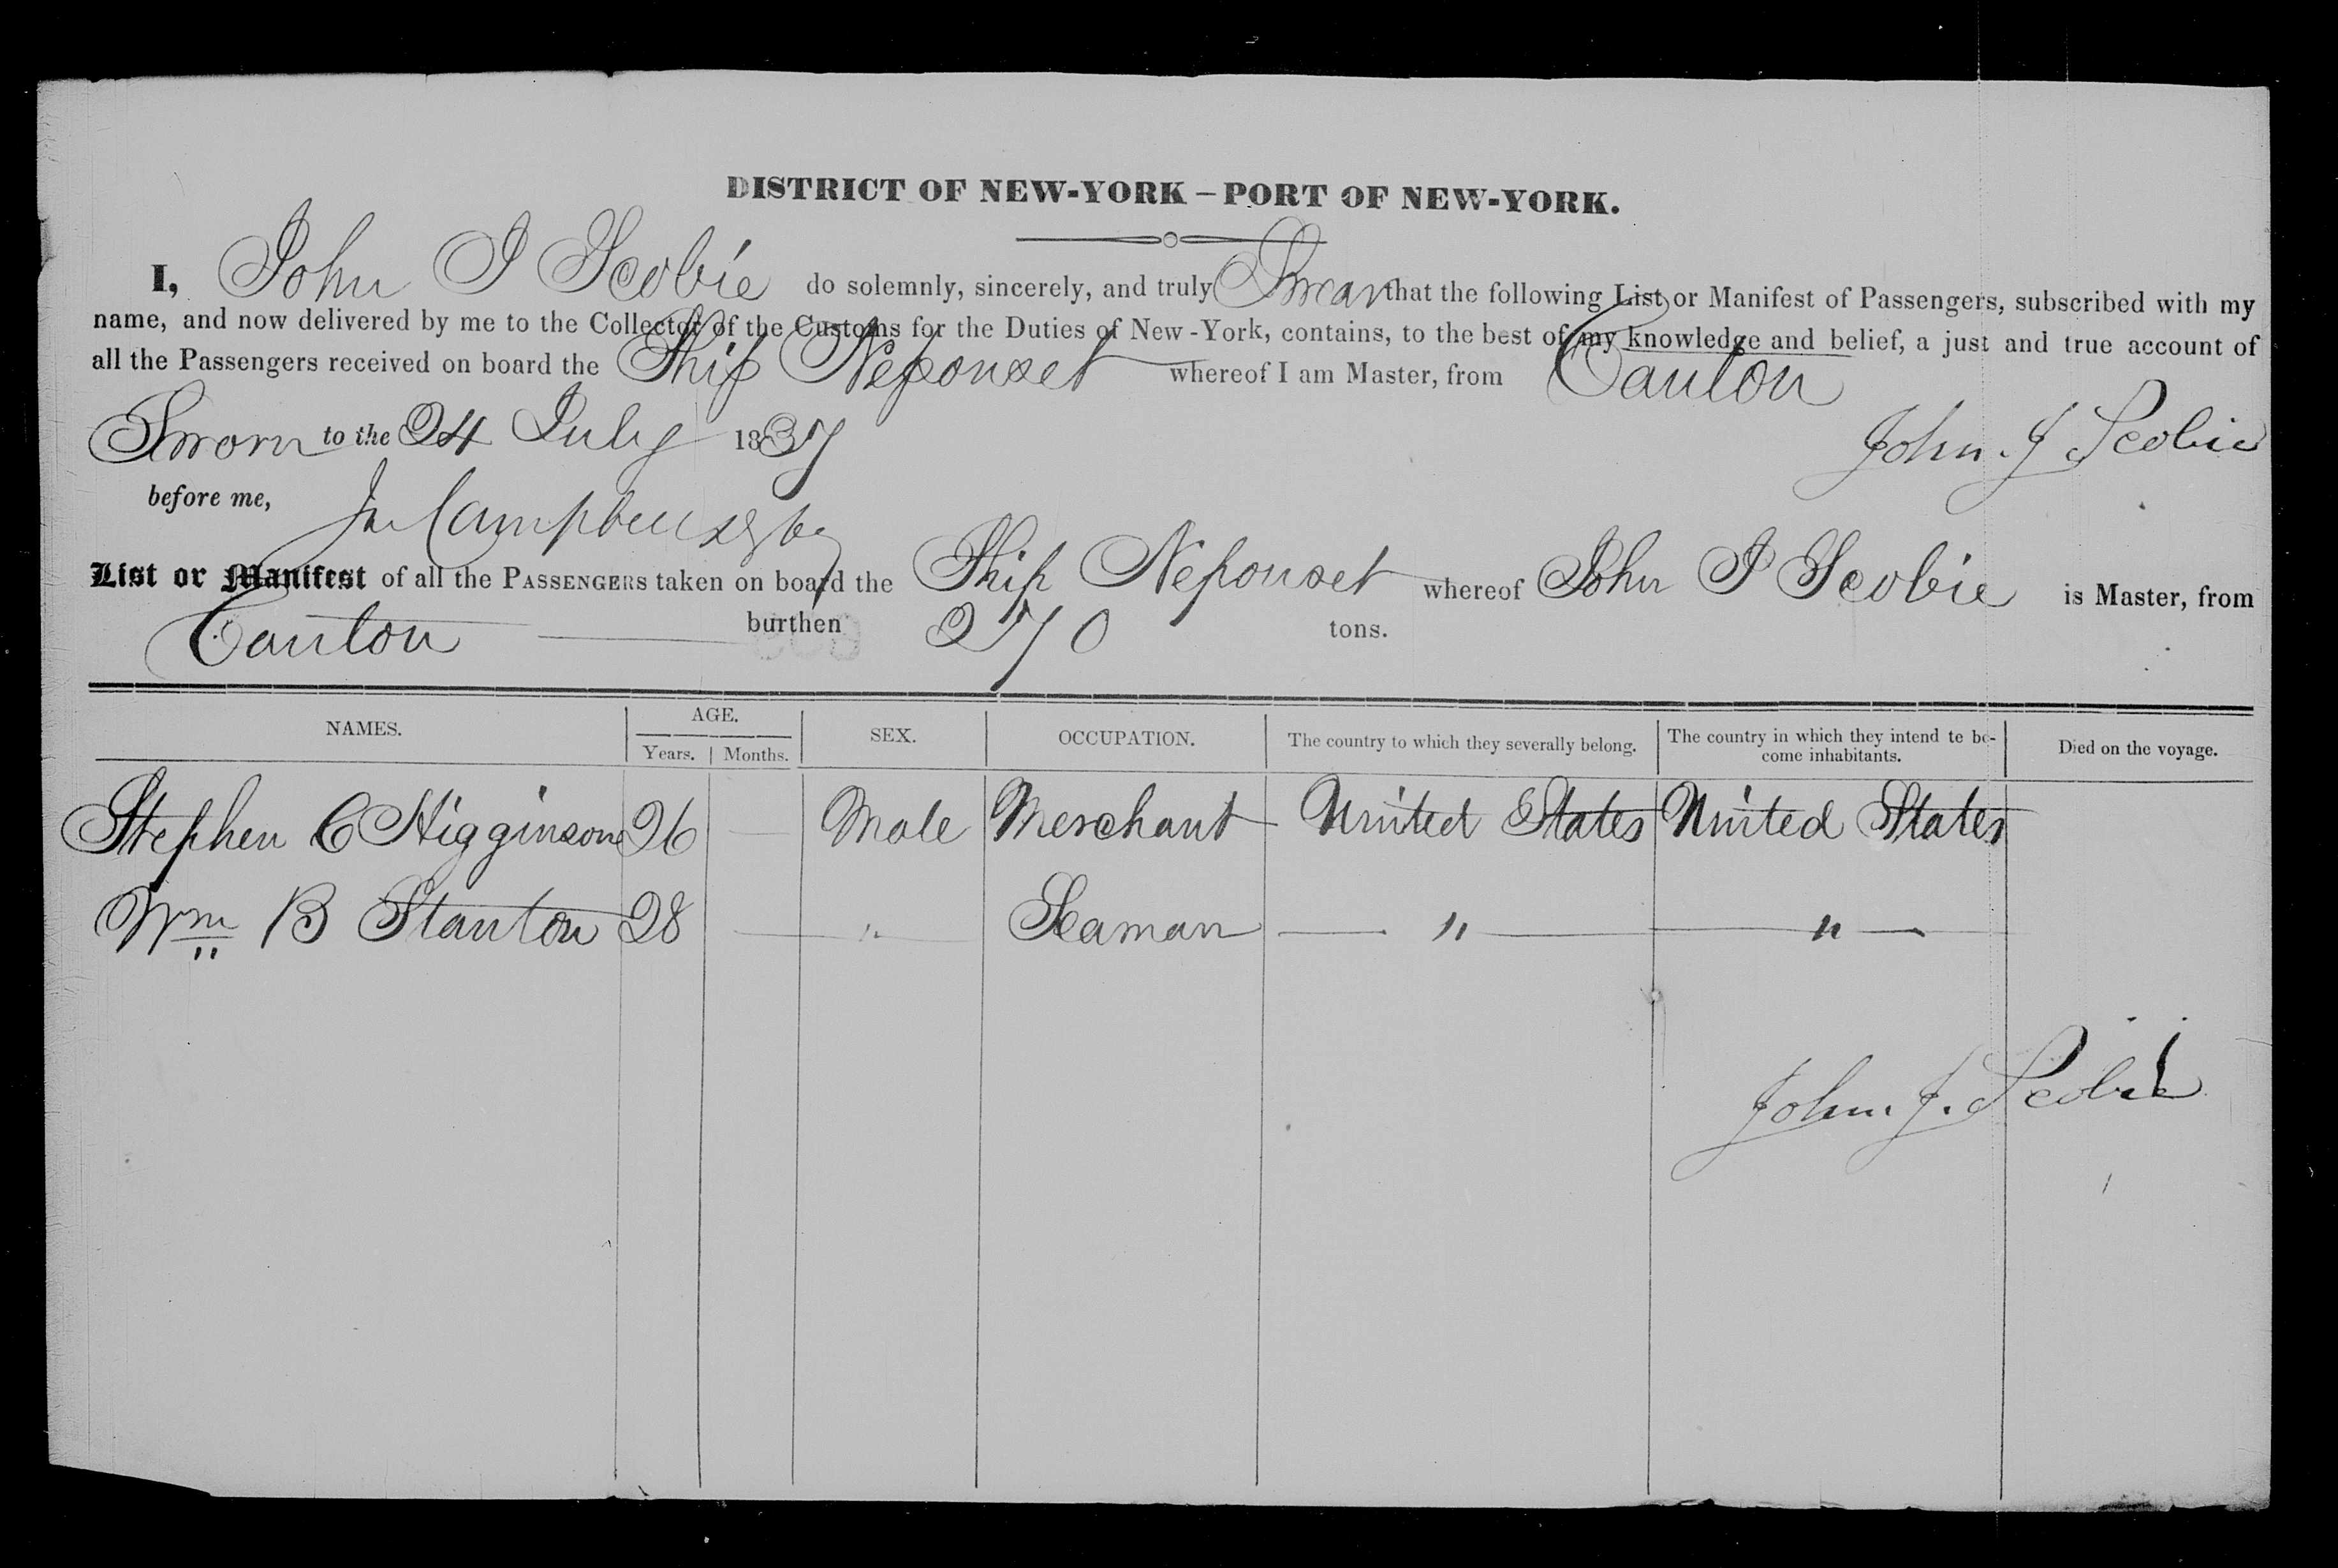 DISTRICT OF NEW-YORK – PORT OF NEW-YORK.
I, John J Scobie do solemnly, sincerely, and truly Swear that the following List or Manifest of Passengers, subscribed with my
name, and now delivered by me to the Collector of the Customs for the Duties of New-York, contains, to the best of my knowledge and belief, a just and true account of
all the Passengers received on board the Ship Neponset whereof I am Master, from Canton
Sworn to the 24 July 1837 John. J Scobie
before me,
Campbell
List or Manifest of all the PASSENGERS taken on board the Ship Neponset whereof John J Scobie is Master, from
Canton burthen 270 tons.
NAMES. AGE. SEX. OCCUPATION. The country to which they severally belong. The country in which they intend te be-come inhabitants. Died on the voyage.
Years. Months.
Stephen C Higginson 26 — Male Merchant United States United States
Wm B Stanton 28 — " Seaman — " — — " —
John. J. Scobie